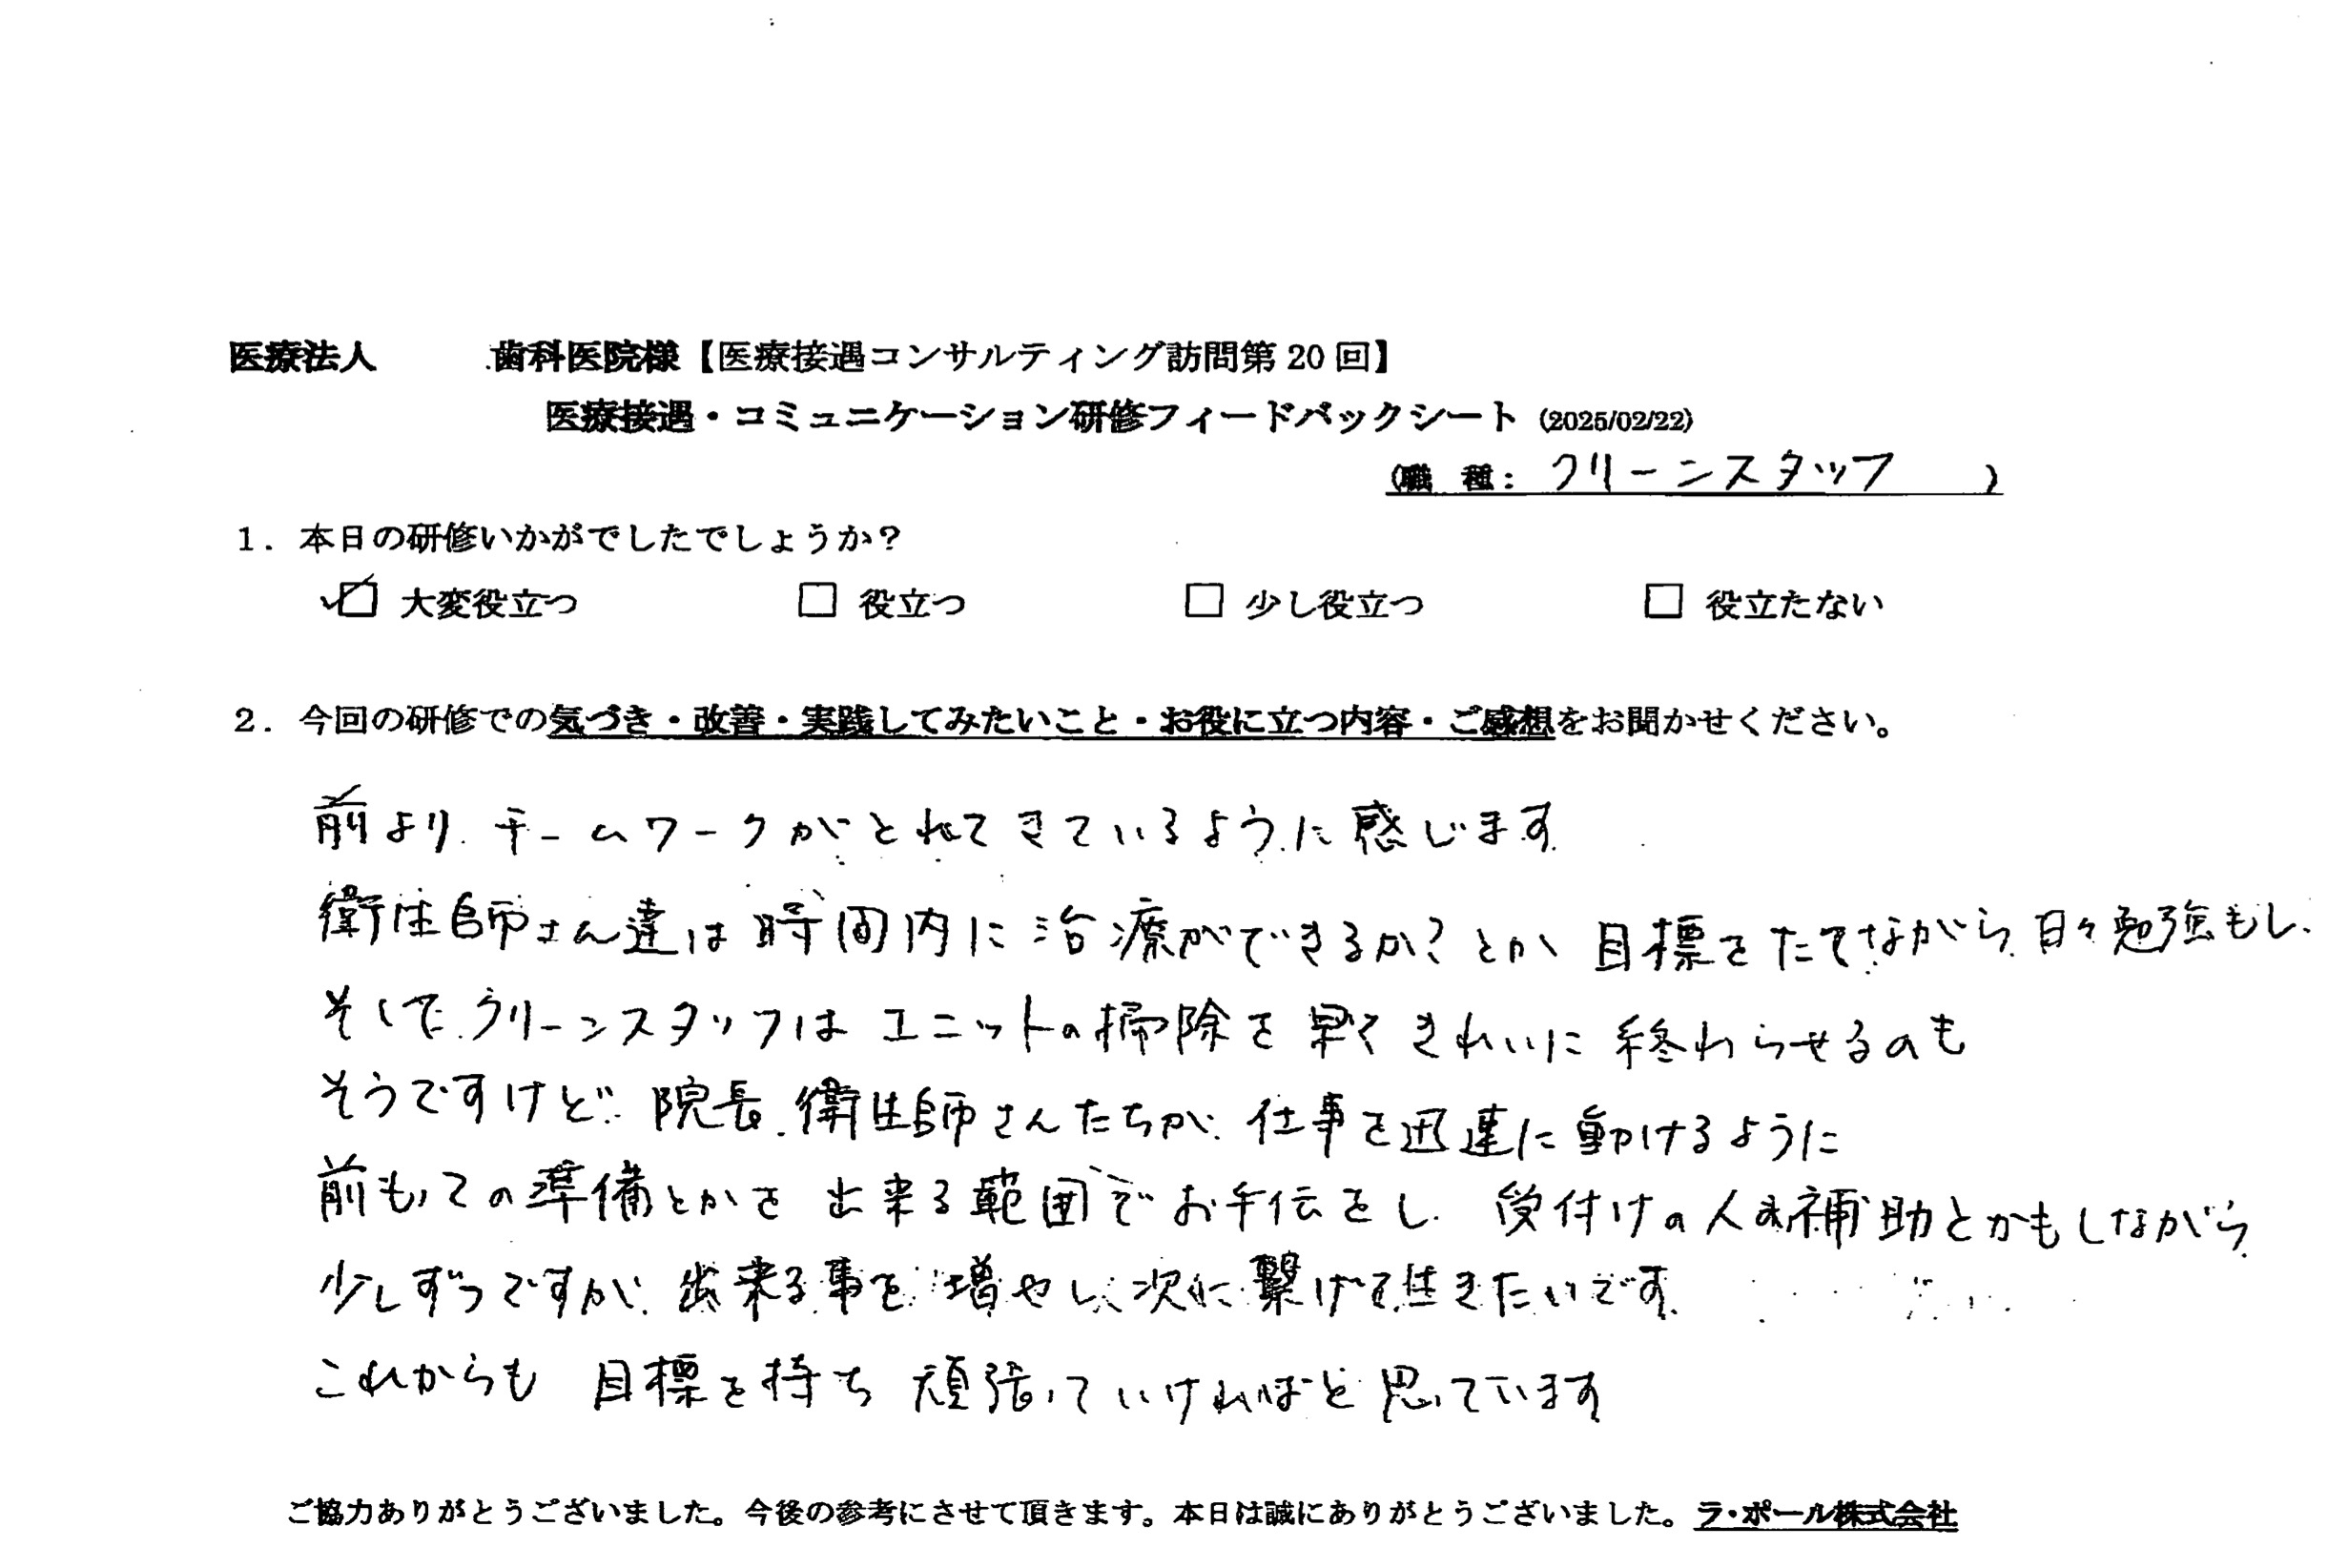 医療法人 歯科医院様【医療接遇コンサルティング訪問第20回】
医療接遇・コミュニケーション研修フィードバックシート (2025/02/22)
(職 種: クリーンスタッフ )
1. 本日の研修いかがでしたでしょうか?
☑ 大変役立つ □ 役立つ □ 少し役立つ □ 役立たない
2. 今回の研修での気づき・改善・実践してみたいこと・お役に立つ内容・ご感想をお聞かせください。
前より、チームワークがとれてきているように感じます
衛生師さん達は時間内に治療ができるか?とか 目標をたてながら、日々勉強もし、
そして、クリーンスタッフは ユニットの掃除を早くきれいに終わらせるのも
そうですけど、院長、衛生師さんたちが、仕事を迅速に動けるように
前もっての準備とかを 出来る範囲でお手伝をし、受付けの人の補助とかもしながら、
少しずつですが、出来る事を増やし、次に繋げて生きたいです。
これからも 目標を持ち 頑張っていければと思っています
ご協力ありがとうございました。今後の参考にさせて頂きます。本日は誠にありがとうございました。ラ・ポール株式会社